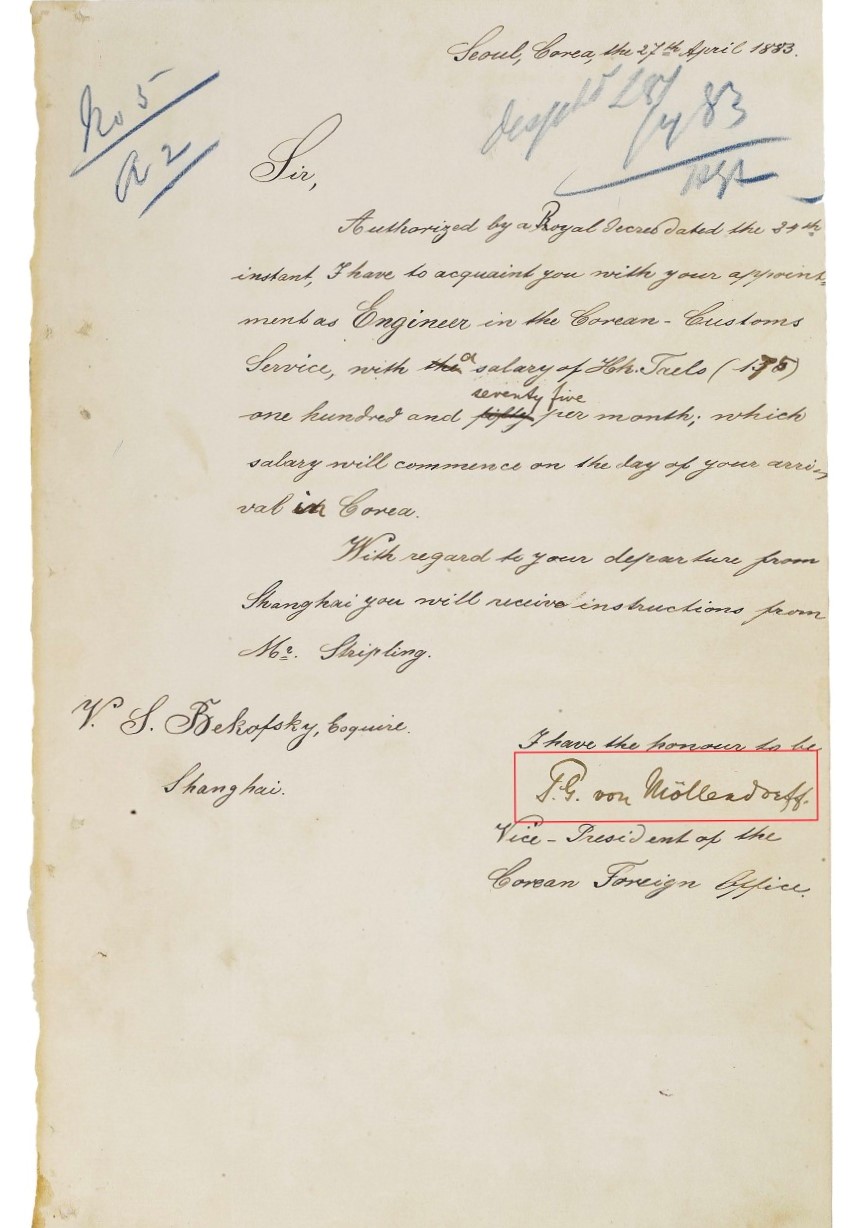 Seoul, Corea, the 27th April 1883.
No 5
R 2
83
Sir,
Authorized by a Royal decree dated the 24th
instant, I have to acquaint you with your appoint-
ment as Engineer in the Corean-Customs
Service, with the a salary of Hk. Taels (175)
seventy five
one hundred and fifty per month; which
salary will commence on the day of your arri-
val in Corea.
With regard to your departure from
Shanghai you will receive instructions from
Mr. Stripling.
V. S. Bekofsky, Esquire.
Shanghai.
I have the honour to be
P. G. von Möllendorff.
Vice-President of the
Corean Foreign Office.